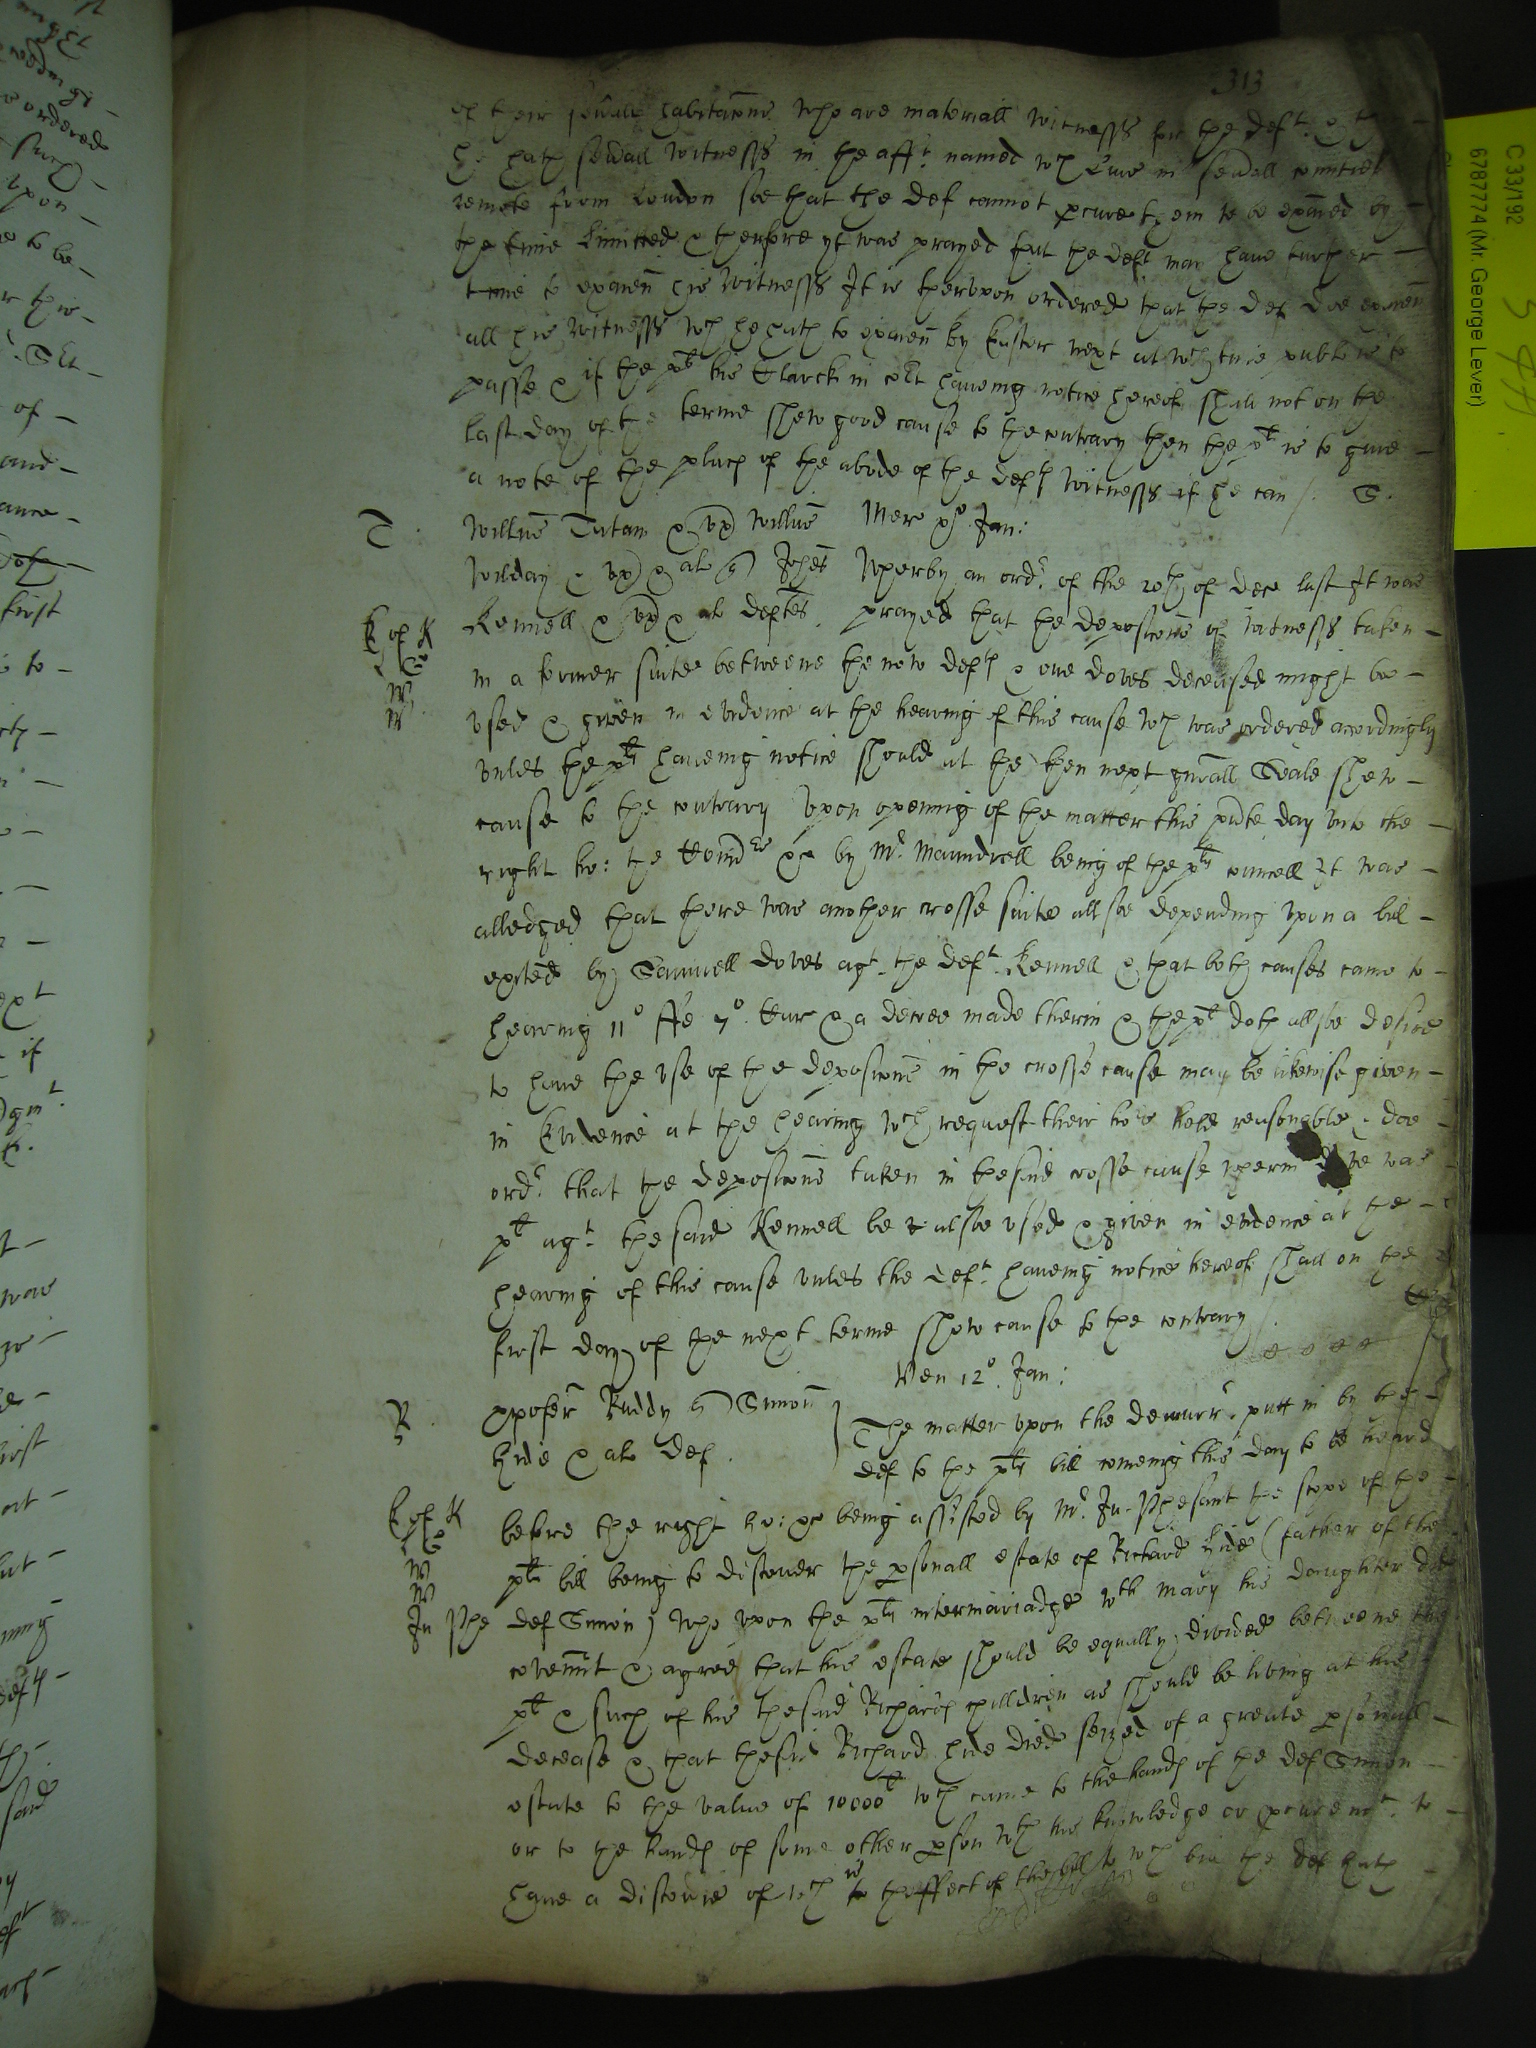 313
of their sevall habitacons who are materiall witnesses for the deft &
he hath sevall witnesses in the afft named wch live in sevall counties
remote from London soe that the def cannot pcure them to be exaied by
the time limitted & therfore yt was prayed that the deft may have further
time to exaien his witnesses It is therupon ordered that the def doe exaien
all his witnesses wch he hath to exaien by Easter next at wch time publ is to
passe & if the plt his Clarck in Cort haveing notice hereof shall not on the
last day of the terme shew good cause to the contrary then the plt is to give
a note of the place of the abode of the defts witnesses if he can /. S.
T. Willus Tutam & ux Willus Mer Jan:
Wilday & ux & al Johes Wherby an ordr of the 20th of Dece last It was
K of K Kennell & ux & al deftes. prayed that the deposicons of witnesses taken
W in a former suite betweene the now defts & one Doves deceased might be
W. used & given in evidence at the hearing of this cause wch was ordered accordingly
unles the plts haveing notice should at the then next gnrall Seale shew
cause to the contrary Upon opening of the matter this pnte day unto the
right ho: the Comrs &c by Mr Maundrell being of the plts councell It was
alledged that there was another crosse suite allsoe depending upon a bil
exited by Samuell Doves agt the deft Kennell & that both causes came to
hearing 11o ffe 7o Car & a decree made therin & the plt doth allsoe desire
to have the use of the deposicons in the crosse cause may be likewise given
in Evidence at the hearing wch request their hors hold reasonable & doe
ordr that the deposicons taken in thesaid crosse cause wherin was
plt agt the said Kennell be alsoe used & given in evidence at the
hearing of this cause unles the deft haveing notice hereof shall on the
first day of the next terme shew cause to the contrary /
Ven 12o. Jan:
R. xpofer Ruddy Simon The matter upon the demurr putt in by the
hide & al def. def to the plts bill comeing this day to be heard
K of K before the right ho: &c being assisted by Mr Ju. Phesant the scope of the
W plts bill being to discover the psonall estate of Richard hide (father of the
W
Ju Phe def Simon) who upon the plts intermariadge wth Mary his daughter did
covennt & agree that his estate should be equally divided betweene the
plt & such of his thesaid Richards children as should be living at his
decease & that thesaid Richard hide died seized of a greate psonall
estate to the value of 10000l wch came to the hands of the def Simon
or to the hands of some other pson wth his knowledge or pcuremt. to
have a discoverie of wch is theffect of the bill to wch bill the def hath
C 33/192
6787774 (Mr. George Lever)